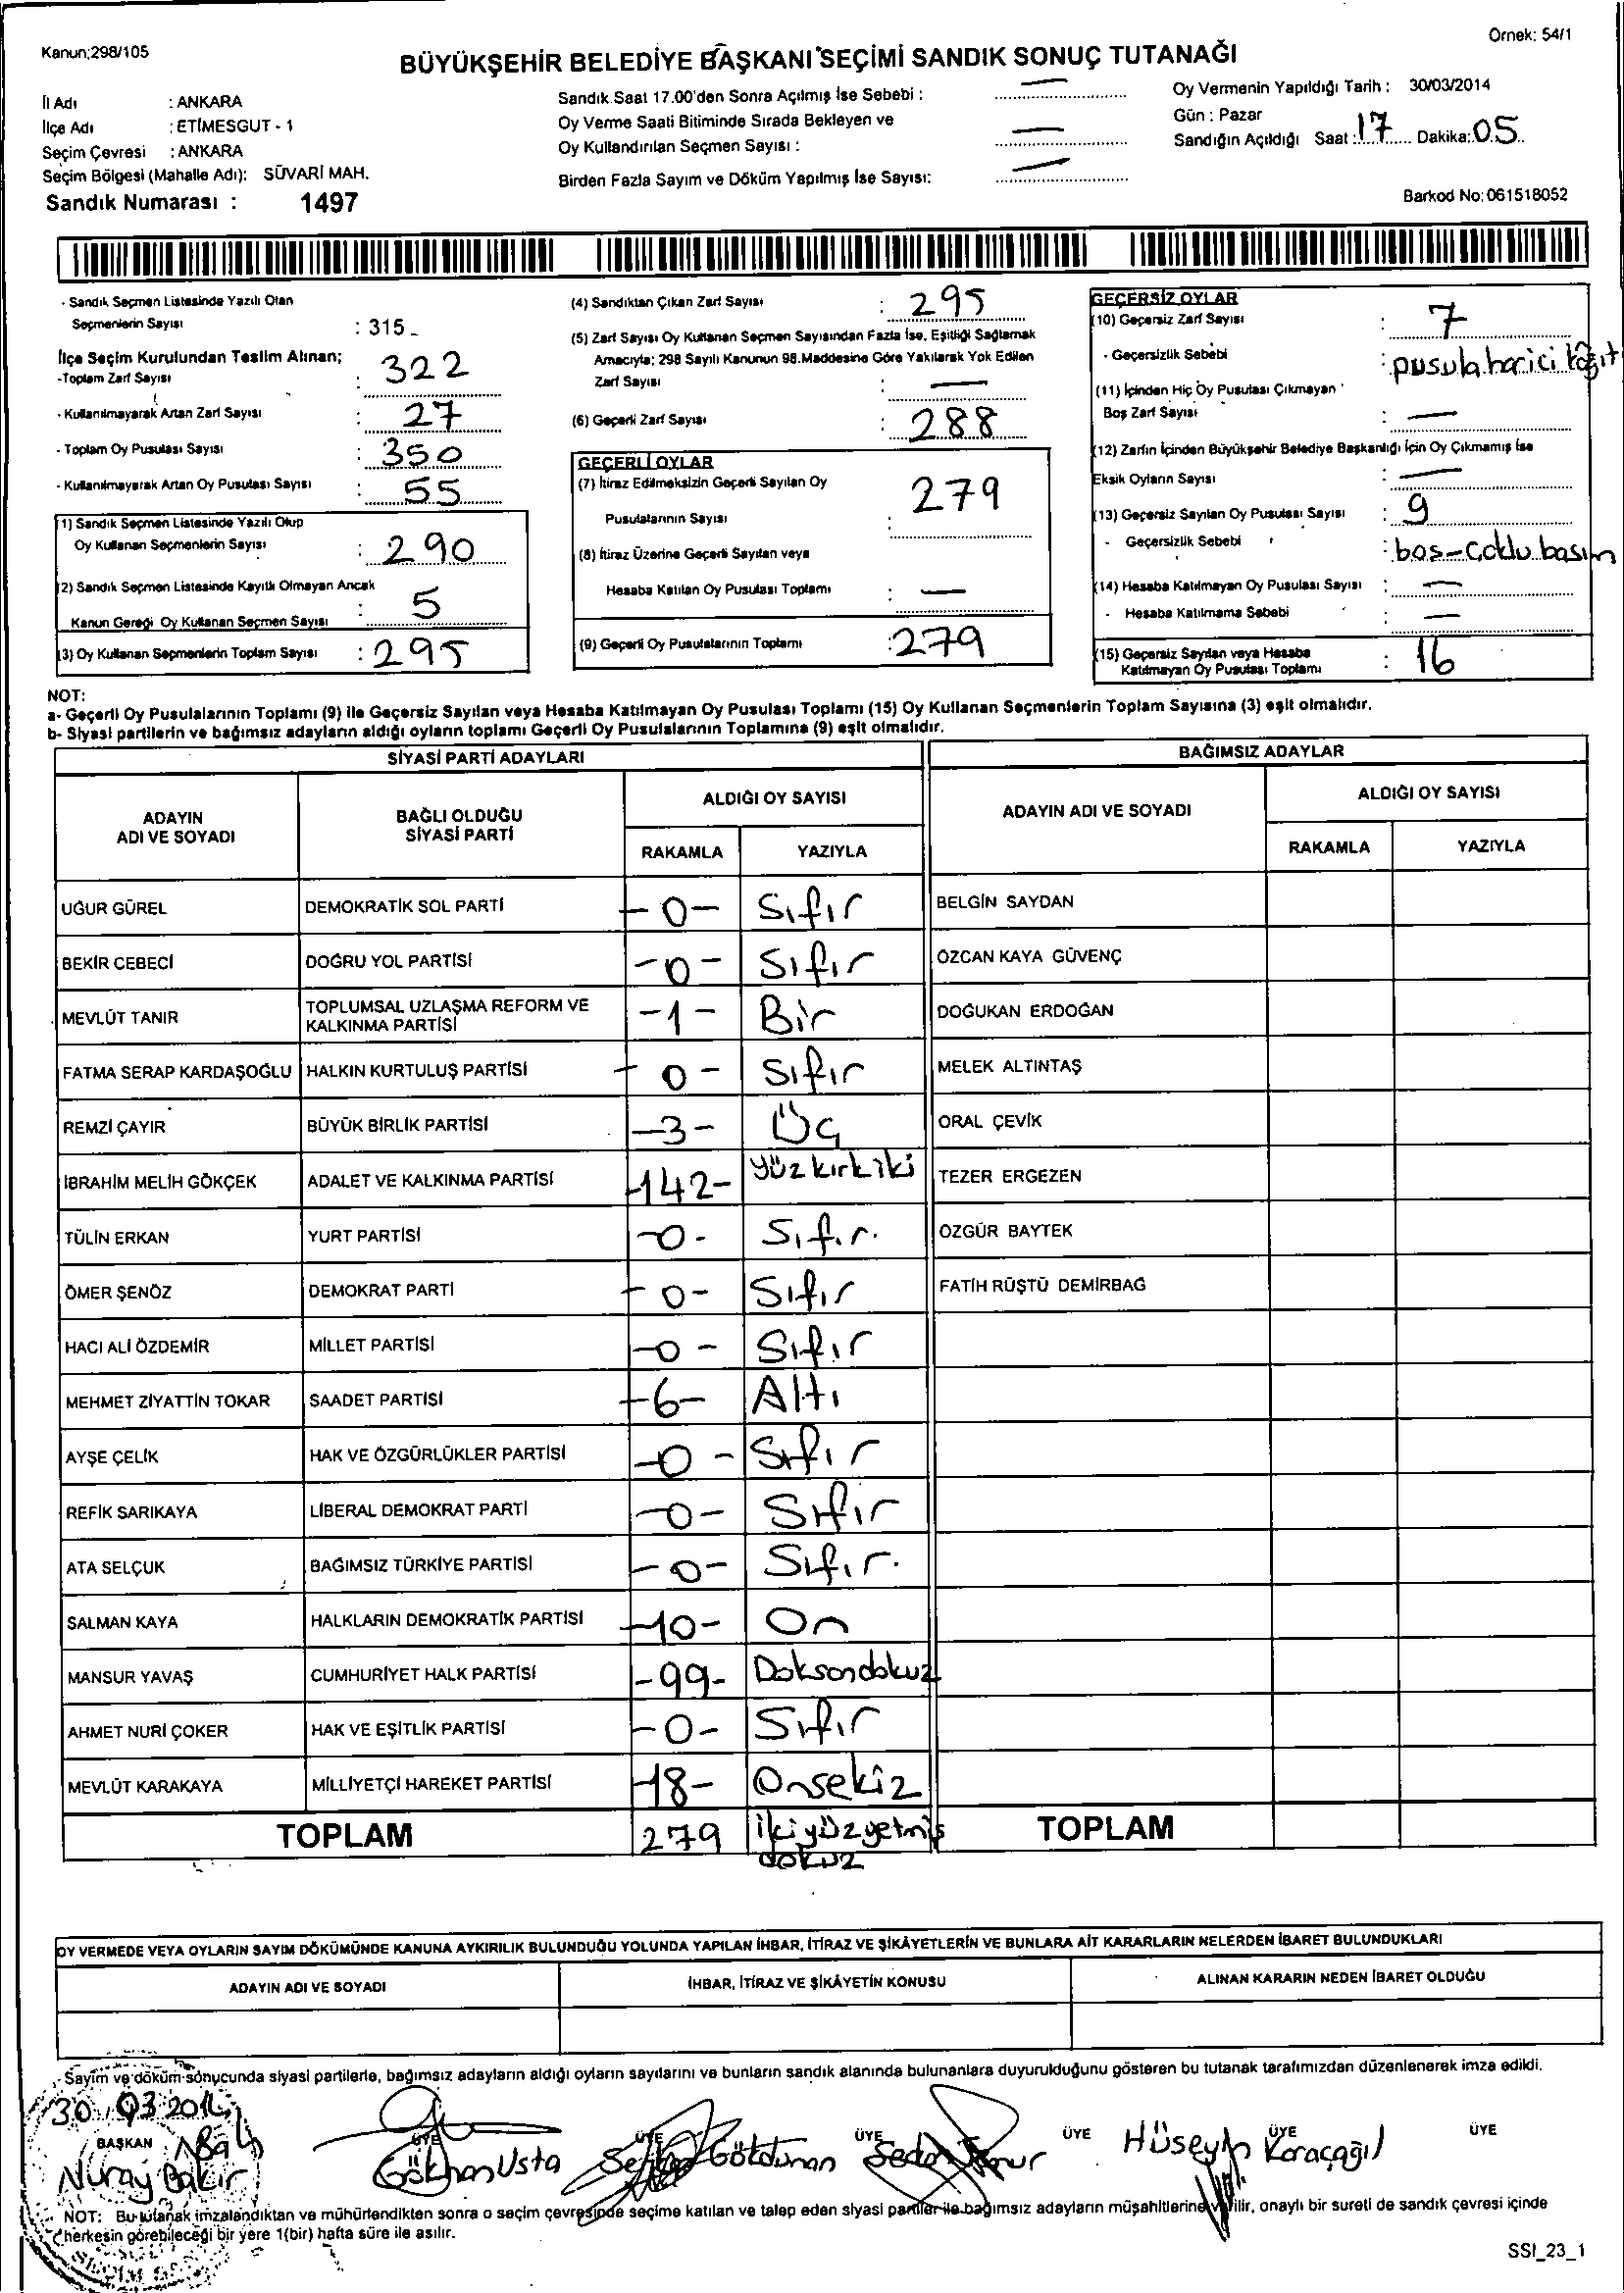 Kanun;298/105
Örnek: 54/1
BÜYÜKŞEHİR BELEDİYE BAŞKANI SEÇİMİ SANDIK SONUÇ TUTANAĞI
İl Adı : ANKARA
İlçe Adı : ETİMESGUT - 1
Seçim Çevresi : ANKARA
Seçim Bölgesi (Mahalle Adı): SÜVARİ MAH.
Sandık Numarası : 1497
Sandık Saat 17.00'den Sonra Açılmış İse Sebebi : —
Oy Verme Saati Bitiminde Sırada Bekleyen ve
Oy Kullandırılan Seçmen Sayısı : —
Birden Fazla Sayım ve Döküm Yapılmış İse Sayısı: —
Oy Vermenin Yapıldığı Tarih : 30/03/2014
Gün : Pazar
Sandığın Açıldığı Saat : 17 Dakika: 05
Barkod No: 061518052
- Sandık Seçmen Listesinde Yazılı Olan
Seçmenlerin Sayısı : 315
İlçe Seçim Kurulundan Teslim Alınan;
-Toplam Zarf Sayısı : 322
- Kullanılmayarak Artan Zarf Sayısı : 27
- Toplam Oy Pusulası Sayısı : 350
- Kullanılmayarak Artan Oy Pusulası Sayısı : 55
(1) Sandık Seçmen Listesinde Yazılı Olup
Oy Kullanan Seçmenlerin Sayısı : 290
(2) Sandık Seçmen Listesinde Kayıtlı Olmayan Ancak
Kanun Gereği Oy Kullanan Seçmen Sayısı : 5
(3) Oy Kullanan Seçmenlerin Toplam Sayısı : 295
(4) Sandıktan Çıkan Zarf Sayısı : 295
(5) Zarf Sayısı Oy Kullanan Seçmen Sayısından Fazla İse, Eşitliği Sağlamak
Amacıyla; 298 Sayılı Kanunun 98.Maddesine Göre Yakılarak Yok Edilen
Zarf Sayısı : —
(6) Geçerli Zarf Sayısı : 288
GEÇERLİ OYLAR
(7) İtiraz Edilmeksizin Geçerli Sayılan Oy
Pusulalarının Sayısı : 279
(8) İtiraz Üzerine Geçerli Sayılan veya
Hesaba Katılan Oy Pusulası Toplamı : —
(9) Geçerli Oy Pusulalarının Toplamı : 279
GEÇERSİZ OYLAR
(10) Geçersiz Zarf Sayısı : 7
- Geçersizlik Sebebi : pusula harici kağıt
(11) İçinden Hiç Oy Pusulası Çıkmayan
Boş Zarf Sayısı : —
(12) Zarfın İçinden Büyükşehir Belediye Başkanlığı İçin Oy Çıkmamış İse
Eksik Oyların Sayısı : —
(13) Geçersiz Sayılan Oy Pusulası Sayısı : 9
- Geçersizlik Sebebi : boş-Çoklu basım
(14) Hesaba Katılmayan Oy Pusulası Sayısı : —
- Hesaba Katılmama Sebebi : —
(15) Geçersiz Sayılan veya Hesaba
Katılmayan Oy Pusulası Toplamı : 16
NOT:
a- Geçerli Oy Pusulalarının Toplamı (9) ile Geçersiz Sayılan veya Hesaba Katılmayan Oy Pusulası Toplamı (15) Oy Kullanan Seçmenlerin Toplam Sayısına (3) eşit olmalıdır.
b- Siyasi partilerin ve bağımsız adayların aldığı oyların toplamı Geçerli Oy Pusulalarının Toplamına (9) eşit olmalıdır.
SİYASİ PARTİ ADAYLARI
BAĞIMSIZ ADAYLAR
ADAYIN
ADI VE SOYADI
BAĞLI OLDUĞU
SİYASİ PARTİ
ALDIĞI OY SAYISI
RAKAMLA YAZIYLA
ADAYIN ADI VE SOYADI
ALDIĞI OY SAYISI
RAKAMLA YAZIYLA
UĞUR GÜREL DEMOKRATİK SOL PARTİ -0- Sıfır BELGİN SAYDAN
BEKİR CEBECİ DOĞRU YOL PARTİSİ -0- Sıfır ÖZCAN KAYA GÜVENÇ
MEVLÜT TANIR TOPLUMSAL UZLAŞMA REFORM VE
KALKINMA PARTİSİ -1- Bir DOĞUKAN ERDOĞAN
FATMA SERAP KARDAŞOĞLU HALKIN KURTULUŞ PARTİSİ -0- Sıfır MELEK ALTINTAŞ
REMZİ ÇAYIR BÜYÜK BİRLİK PARTİSİ -3- Üç ORAL ÇEVİK
İBRAHİM MELİH GÖKÇEK ADALET VE KALKINMA PARTİSİ -142- yüzkırkiki TEZER ERGEZEN
TÜLİN ERKAN YURT PARTİSİ -0- Sıfır. ÖZGÜR BAYTEK
ÖMER ŞENÖZ DEMOKRAT PARTİ -0- Sıfır FATİH RÜŞTÜ DEMİRBAĞ
HACI ALİ ÖZDEMİR MİLLET PARTİSİ -0- Sıfır
MEHMET ZİYATTİN TOKAR SAADET PARTİSİ -6- Altı
AYŞE ÇELİK HAK VE ÖZGÜRLÜKLER PARTİSİ -0- Sıfır
REFİK SARIKAYA LİBERAL DEMOKRAT PARTİ -0- Sıfır
ATA SELÇUK BAĞIMSIZ TÜRKİYE PARTİSİ -0- Sıfır.
SALMAN KAYA HALKLARIN DEMOKRATİK PARTİSİ -10- On
MANSUR YAVAŞ CUMHURİYET HALK PARTİSİ -99- Doksandokuz
AHMET NURİ ÇOKER HAK VE EŞİTLİK PARTİSİ -0- Sıfır
MEVLÜT KARAKAYA MİLLİYETÇİ HAREKET PARTİSİ -18- Onsekiz
TOPLAM 279 İkiyüzyetmiş TOPLAM
dokuz
OY VERMEDE VEYA OYLARIN SAYIM DÖKÜMÜNDE KANUNA AYKIRILIK BULUNDUĞU YOLUNDA YAPILAN İHBAR, İTİRAZ VE ŞİKÂYETLERİN VE BUNLARA AİT KARARLARIN NELERDEN İBARET BULUNDUKLARI
ADAYIN ADI VE SOYADI İHBAR, İTİRAZ VE ŞİKÂYETİN KONUSU ALINAN KARARIN NEDEN İBARET OLDUĞU
- Sayım ve döküm sonucunda siyasi partilerle, bağımsız adayların aldığı oyların sayılarını ve bunların sandık alanında bulunanlara duyurulduğunu gösteren bu tutanak tarafımızdan düzenlenerek imza edildi.
30.03.2014
BAŞKAN ÜYE ÜYE ÜYE ÜYE ÜYE ÜYE
Nuray Bakır Gökhan Usta Hüseyin Karaçağıl
NOT: Bu tutanak imzalandıktan ve mühürlendikten sonra o seçim çevresinde seçime katılan ve talep eden siyasi partiler ile bağımsız adayların müşahitlerine verilir, onaylı bir sureti de sandık çevresi içinde
herkesin görebileceği bir yere 1(bir) hafta süre ile asılır.
SSI_23_1